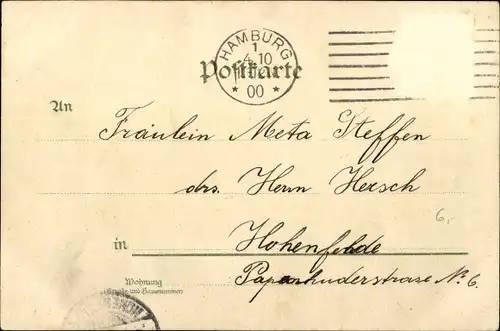 HAMBURG
1
4.10
* 00 *
Postkarte
An
Fräulein Meta Steffen
drs. Herrn Hersch
6,-
in Hohenfelde
Wohnung
(Straße und Hausnummer)
Papenhuderstrase No. 6.